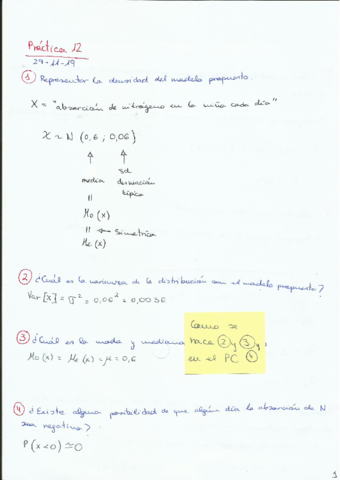 Práctica 12
29-11-19
① Representar la densidad del modelo propuesto.
X = "absorción de nitrógeno en la niña cada día"
X ~ N (0,6 ; 0,06)
sd
media desviación
típica
||
Mo (x)
|| ← simetría
Me (x)
② ¿Cuál es la varianza de la distribución son el modelo propuesto?
Var [X] = σ² = 0,06² = 0,0036
③ ¿Cuál es la moda y mediana
Mo (x) = Me (x) = μ = 0,6
Como se
hace ② y ③ y
en el PC ④
④ ¿Existe alguna posibilidad de que algún día la absorción de N
sea negativa?
P (x<0) ≃ 0
1